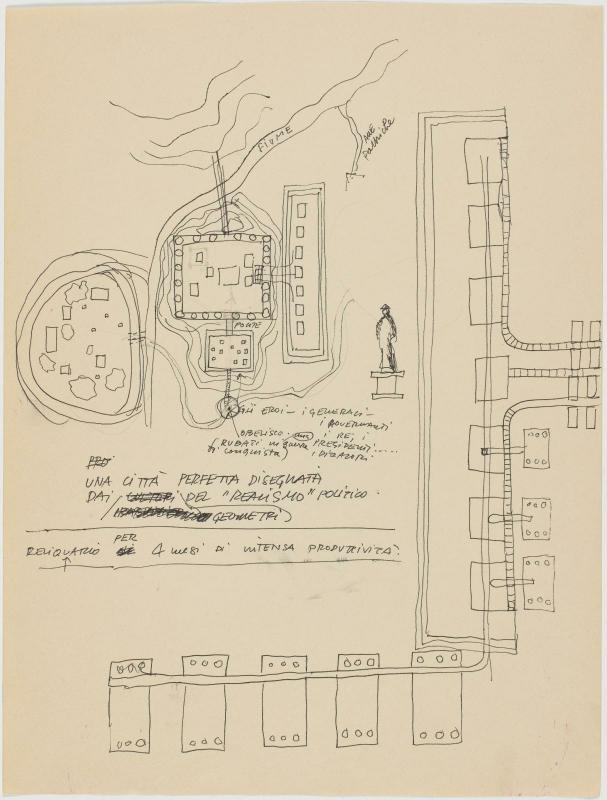 FIUME
ARE
PONTE
GLI EROI - I GENERALI -
I GOVERNANTI
OBELISCO I RE, I
(RUBATI in guerra PRESIDENTI.....
di conquista) I DIZATORI.
PRO
UNA CITTÀ PERFETTA DISEGNATA
DAI DEL "REALISMO" POLITICO.
GEOMETRI)
RELIQUARIO PER 4 MESI DI INTENSA PRODUTTIVITÀ.